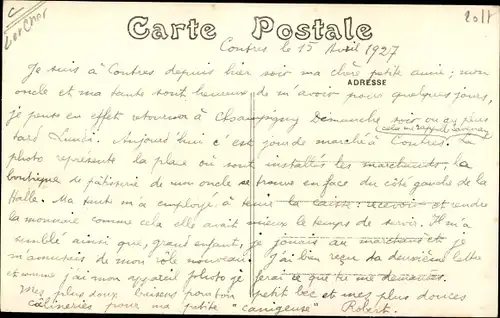 Loir Cher
2011
Carte Postale
Contres le 15 Avril 1927
ADRESSE
Je suis à Contres depuis hier soir ma chère petite amie ; mon
oncle et ma tante sont heureux de m'avoir pour quelques jours,
je pense en effet retourner à Champigny Dimanche soir ou au plus
tard Lundi. Aujourd'hui c'est jour de marché à Contres. La
(cela me rappelle
photo représente la place où sont installés les marchands, la
boutique de pâtisserie de mon oncle se trouve en face du côté gauche de la
Halle. Ma tante m'a employé à tenir la caisse : recevoir et rendre
la monnaie comme cela elle avait mieux le temps de servir. Il m'a
semblé ainsi que, grand enfant, je jouais au marchand et je
m'amusais de mon rôle nouveau. J'ai bien reçu ta dernière lettre
et comme j'ai mon appareil photo je ferai ce que tu me demandes.
Mes plus doux baisers pour ton petit bec et mes plus douces
câlineries pour ma petite "camigeuse" Robert.